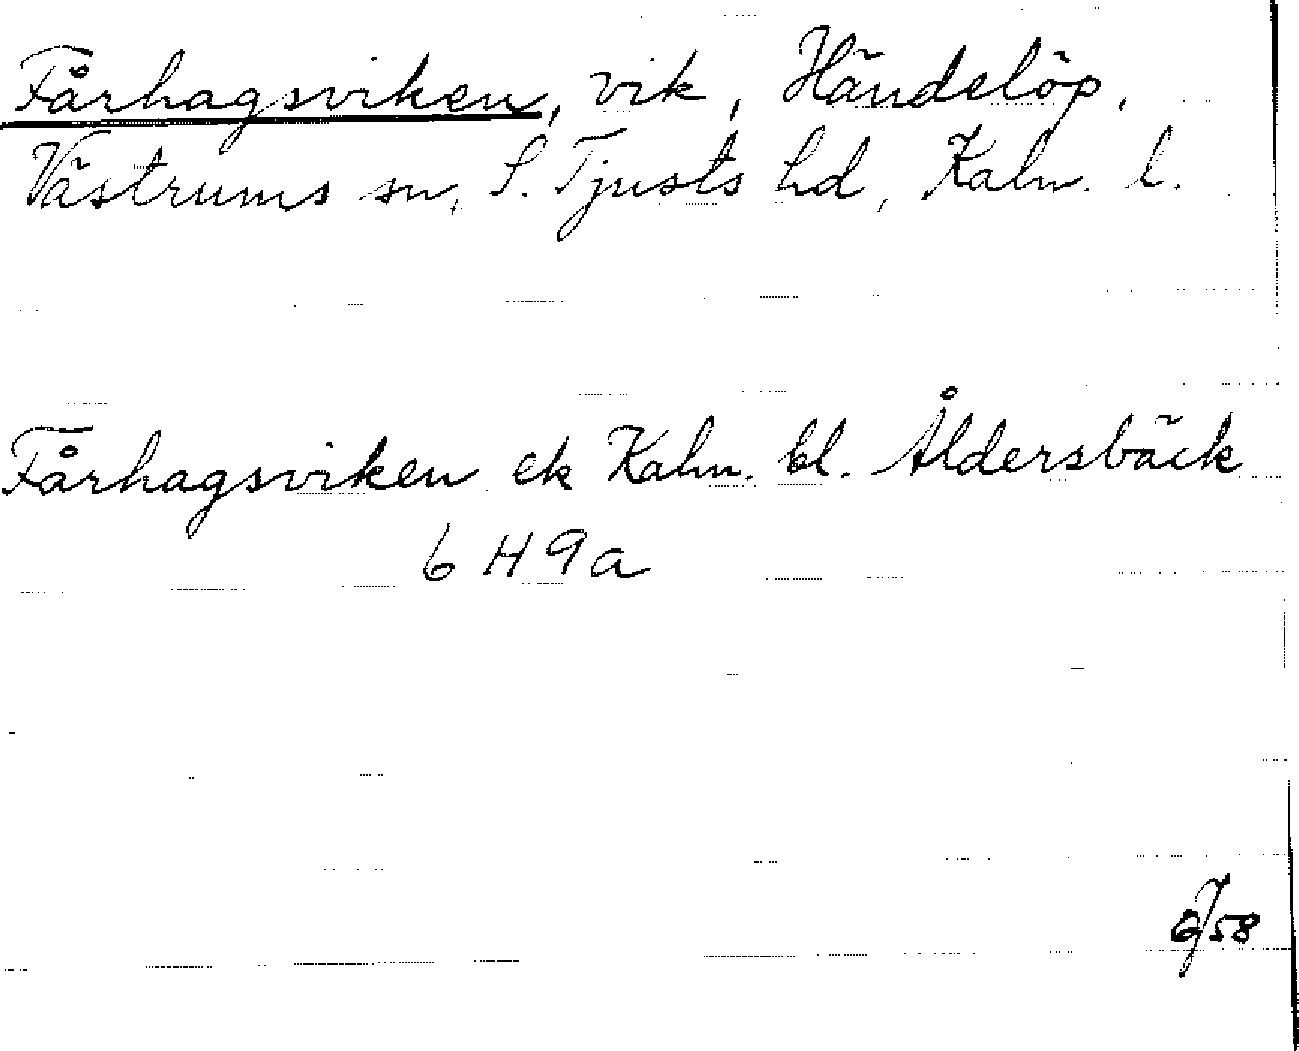 Fårhagsviken, vik, Händelöp,
Västrums sn, S. Tjusts hd, Kalm. l.
Fårhagsviken ek Kalm. bl. Åldersbäck
6 H 9a